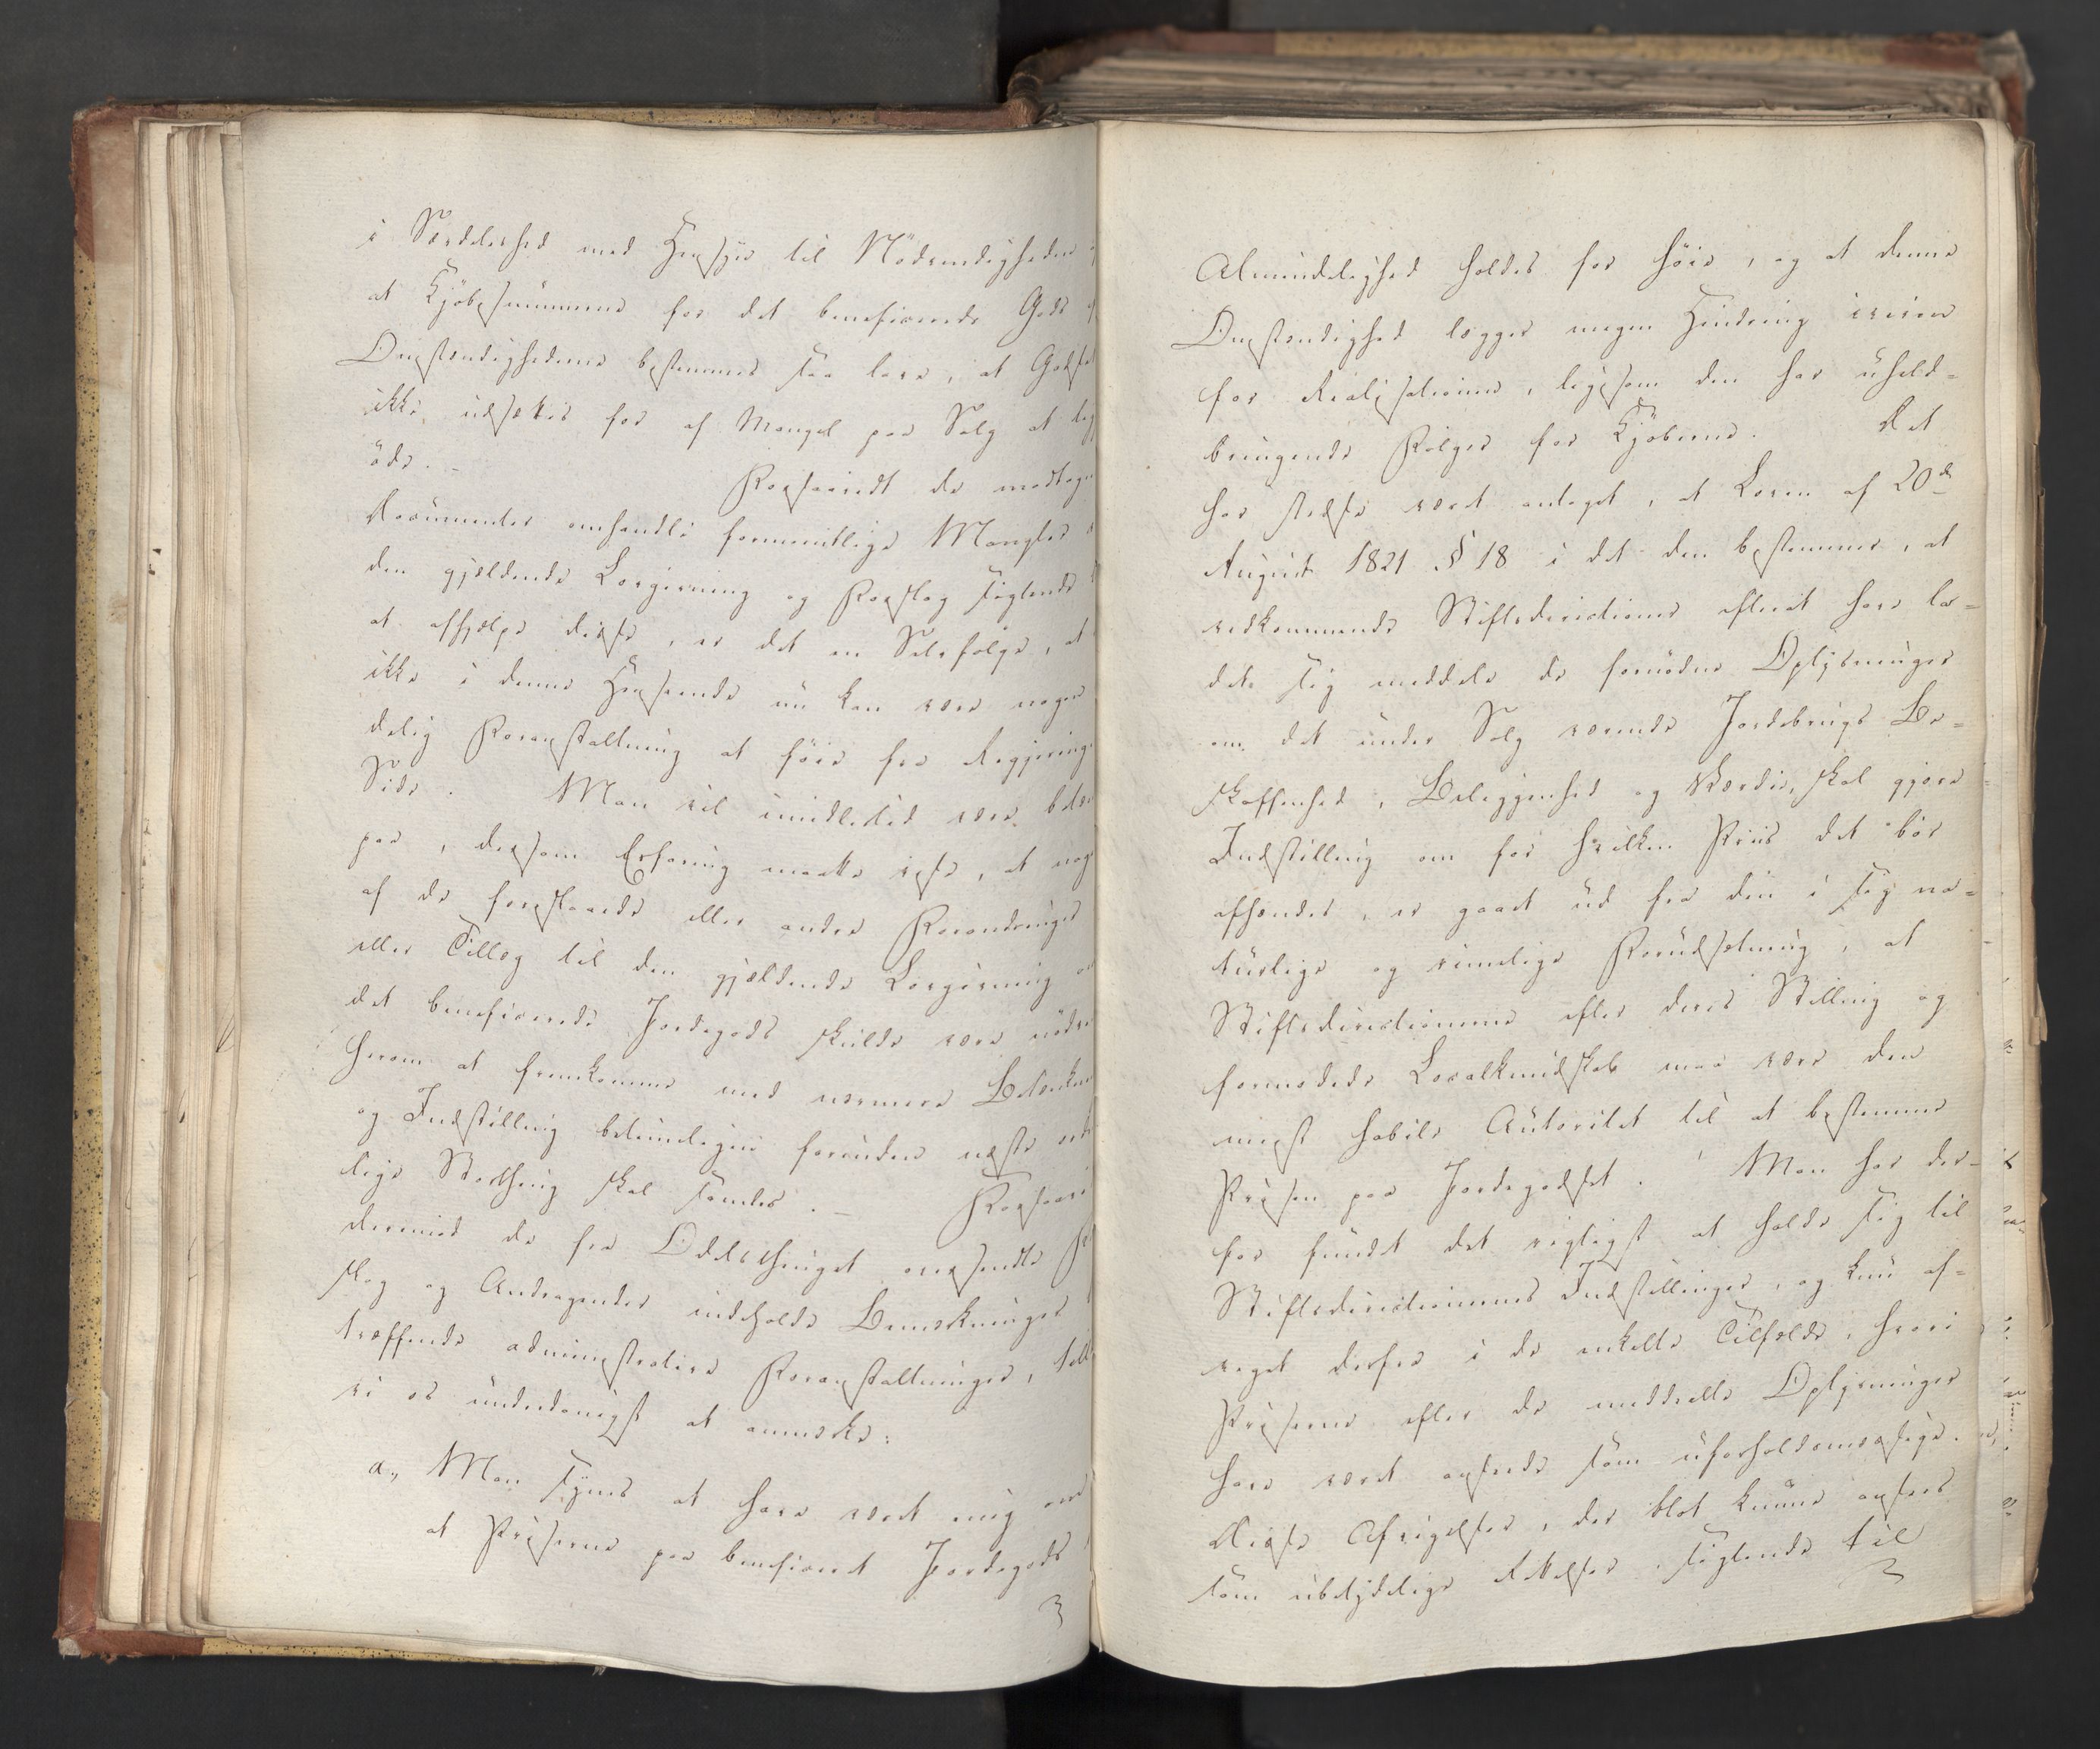 i Særdeleshed med Hensyn til Nödvendigheden
at Kjöbesummerne for det beneficerede Gods
Omstændighederne bestemmes saa lave, at Godset
ikke udsættes for af Mangel paa Salg at
öde. –            Forsaavidt de modtagne
Documenter omhandle formentlige Mangler
den gjældende Lovgivning og Forslag sigtende
at afhjelpe disse, er det en Selvfölge, at
ikke i denne Henseende nu kan være nogen
delig Foranstaltning at föie fra Regjeringens
Side.    Man vil imidlertid være betænkt
paa, dersom Erfaring maatte vise, at nogen
af de foreslaaede eller andre Forandringer
eller Tillæg til den gjældende Lovgivning om
det beneficerede Jordegods skulde være
herom at fremkomme med nærmere
og Indstilling betimeligen forinden næste
lige Storthing skal samles. –      Forsaavidt
derimod de fra Odelsthinget oversendte
slag og Andragender indeholde Bemærkninger
træffende administrative Foranstaltninger,
vi os underdanigst at anmærke:
a., Man synes at have været enig om
at Priserne paa beneficeret Jordegods
Almindelighed holdes for höie, og at denne
Omstændighed lægger megen Hindring iveien
for Realisationen, ligesom den har uheld=
bringende Fölger for Kjöberne.      Det
har stedse været antaget, at Loven af 20de
August 1821 § 18 i det den bestemmer, at
vedkommende Stiftsdirectioner efterat have la=
det sig meddele de fornödne Oplysninger
om det under Salg værende Jordebrugs Be=
skaffenhed, Beliggenhed og Værdie, skal gjöre
Indstilling om for hvilken Priis det bör
afhændes, er gaaet ud fra den i sig na=
turlige og rimelige Forudsætning, at
Stiftsdirectionerne efter deres Stilling og
formodede Localkundskab maa være den
meest habile Autoritet til at bestemme
Prisen paa Jordegodset.    Man har der=
for fundet det rigtigst at holde sig til
Stiftsdirectionernes Indstillinger, og kun af=
veget derfra i de enkelte Tilfælde, hvori
Priserne efter de meddeelte Oplysninger
have været ansete som uforholdsmæssige.
Disse Afvigelser, der blot kunne ansees
som ubetydelige Rettelser, sigtende til